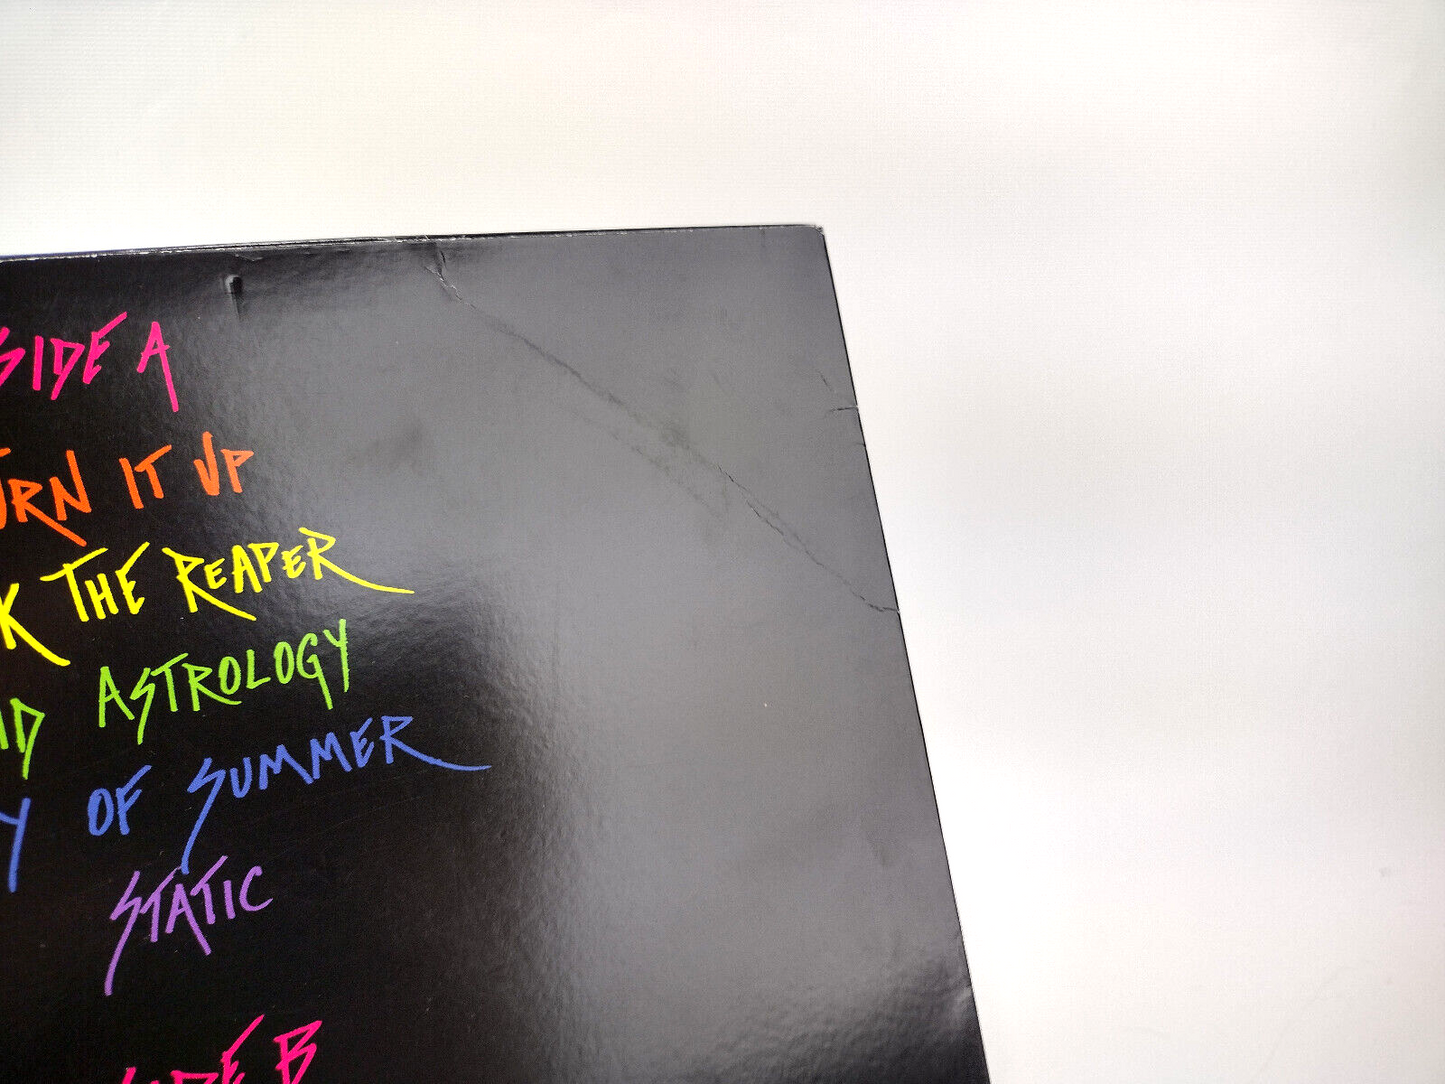 SIDE A
TURN IT UP
THE REAPER
ASTROLOGY
OF SUMMER
STATIC
SIDE B